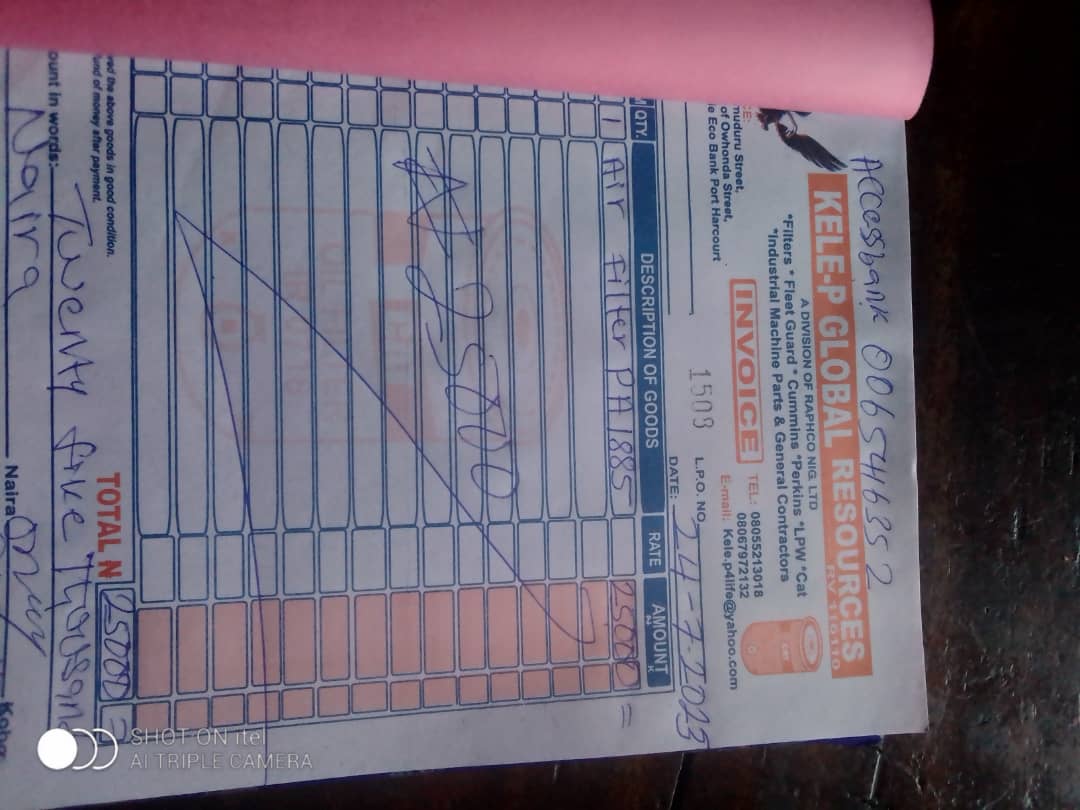 Accessbank 0065463572
KELE-P GLOBAL RESOURCES
RV 110110
A DIVISION OF RAPHCO NIG. LTD
*Filters * Fleet Guard * Cummins *Perkins *LPW *Cat
*Industrial Machine Parts & General Contractors
CE:
muduru Street,
of Owhonda Street,
le Eco Bank Port Harcourt
INVOICE
TEL: 08055213018
08067972132
E-mail: Kele.p4life@yahoo.com
1503
L.P.O. NO.
DATE: 24-7-2023
M QTY. DESCRIPTION OF GOODS RATE AMOUNT
N K
1 Air filter PA1885 25000 =
₦25000
TOTAL N 25000 =
ved the above goods in good condition.
und of money after payment.
ount in words: Twenty five Thousand
Naira Only Naira Kobo
SHOT ON itel
AI TRIPLE CAMERA